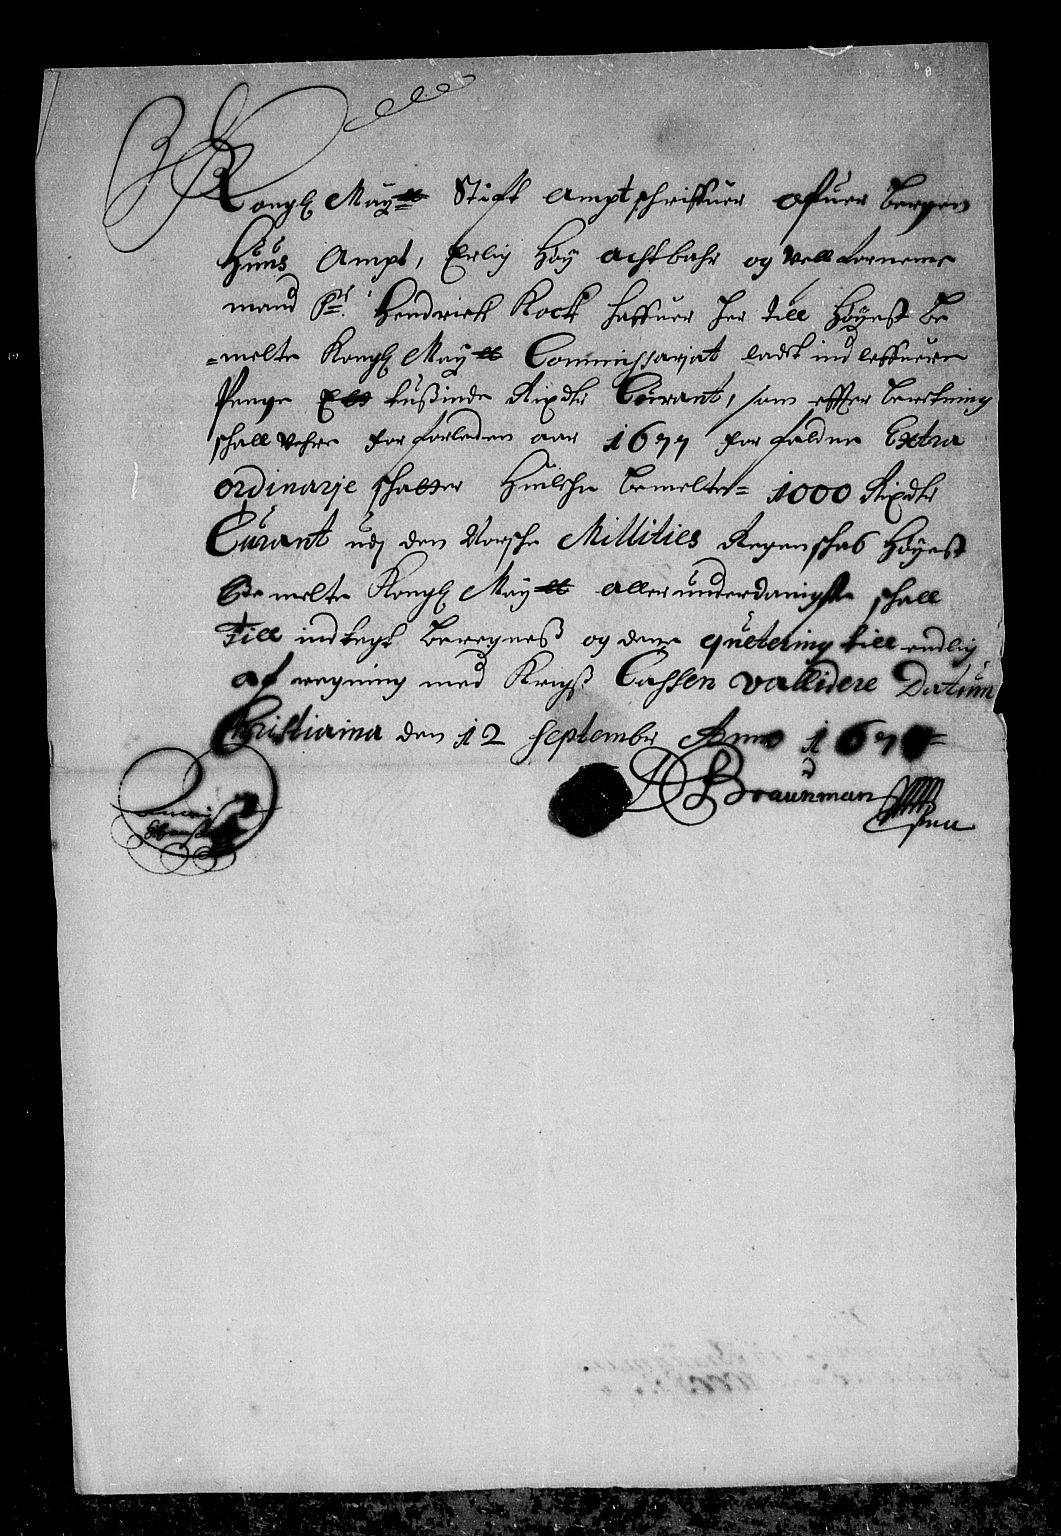 Kongl May:tt Stift Amptschriffuer offuer Bergen
Huus Ampt, Erlig Høy achtbahr og vell forneme
mand Sr: Hendrick Kock haffuer her till Høyest be
=melte Kongl May:tt Commissariat ladet ind leffuere
Penge Ett tusinde Rixdlr Curant, som effter beretning
schall vehre for forleden aar 1677 for falden Extra
ordinarje schatter Huilche bemelte= 1000 Rixdlr
Curant udj den Norsche Millities Regenschab Høyest
Bemelte Kongl May:tt aller underdanigste schall
Till indtegt beregness og denne quitering till endlig
afregning med Krigs Cassen vallidere Datum
Christiania den 12 Septembr Anno 167
D Braunman